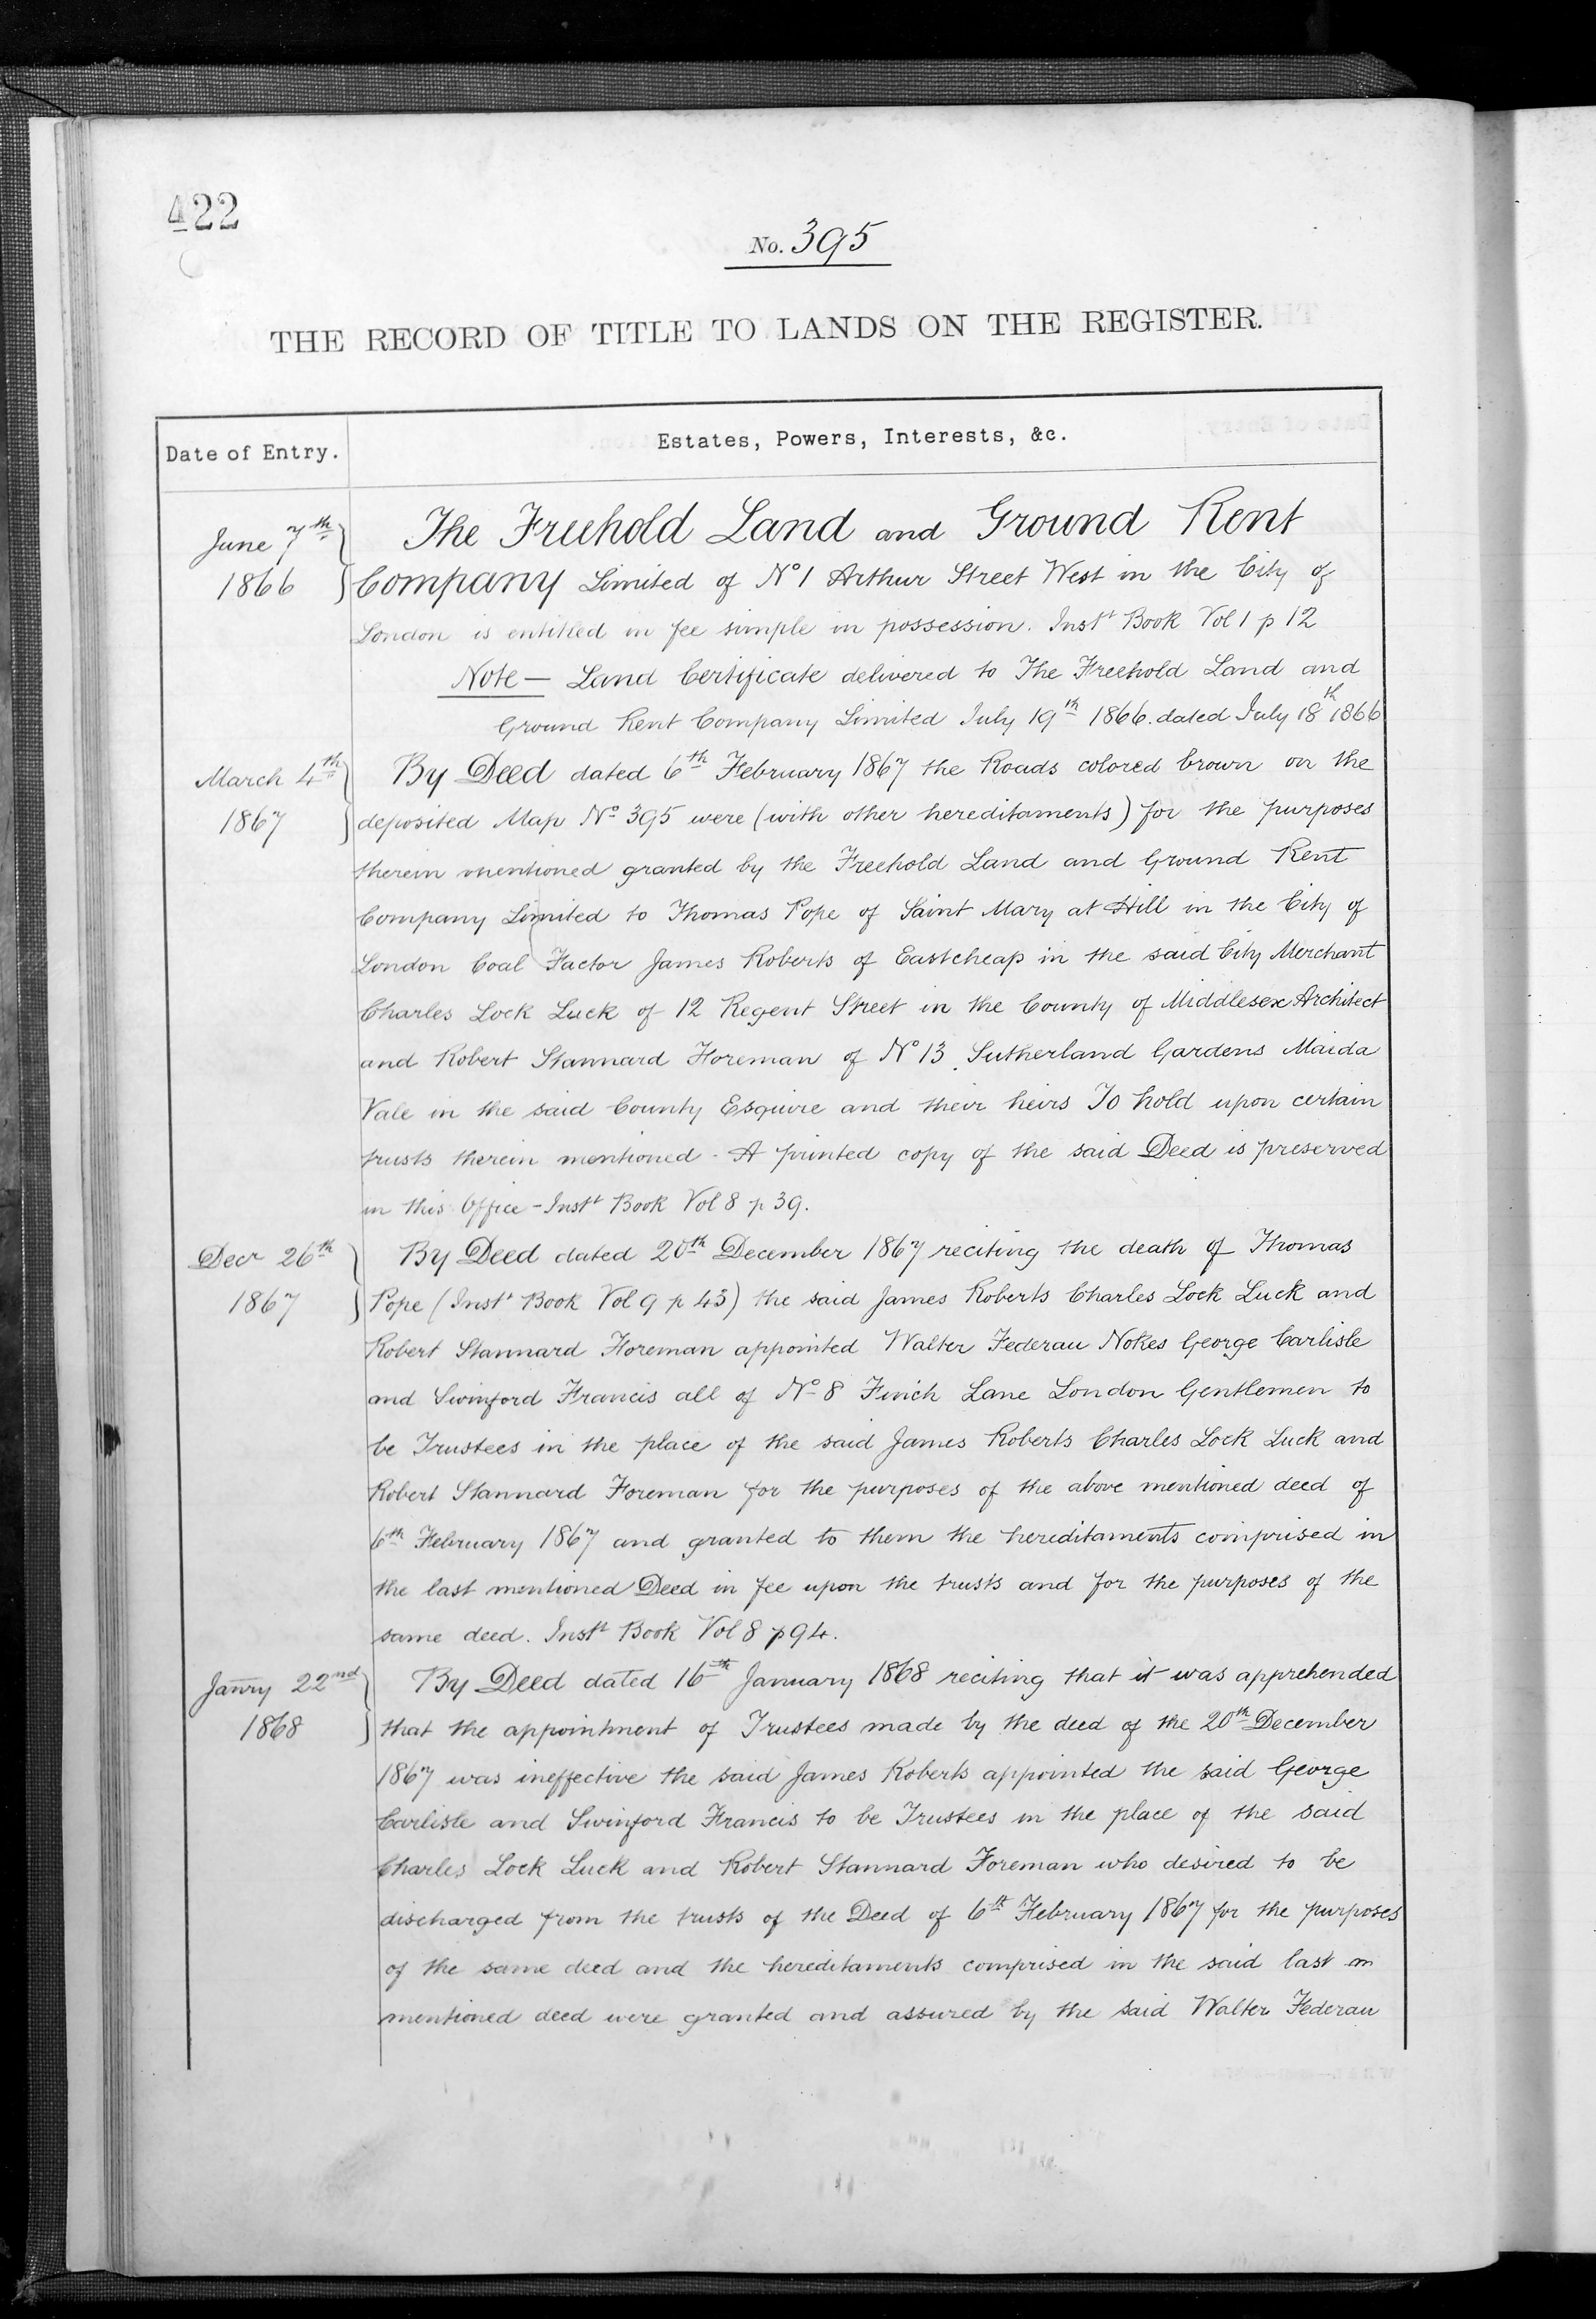 422
No. 395
THE RECORD OF TITLE TO LANDS ON THE REGISTER.
Date of Entry.
Estates, Powers, Interests, &c.
June 7th
1866
The Freehold Land and Ground Rent
Company Limited of No 1 Arthur Street West in the City of
London is entitled in fee simple in possession. Instt Book Vol 1 p 12
Note — Land Certificate delivered to The Freehold Land and
Ground Rent Company Limited July 19th 1866. dated July 18th 1866
March 4th
1867
By Deed dated 6th February 1867 the Roads colored brown on the
deposited Map No 395 were (with other hereditaments) for the purposes
therein mentioned granted by the Freehold Land and Ground Rent
Company Limited to Thomas Pope of Saint Mary at Hill in the City of
London Coal Factor James Roberts of Eastcheap in the said City Merchant
Charles Lock Luck of 12 Regent Street in the County of Middlesex Architect
and Robert Stannard Foreman of No 13 Sutherland Gardens Maida
Vale in the said County Esquire and their heirs To hold upon certain
trusts therein mentioned - A printed copy of the said Deed is preserved
in this Office - Instt Book Vol 8 p 39.
Decr 26th
1867
By Deed dated 20th December 1867 reciting the death of Thomas
Pope (Instt Book Vol 9 p 43) the said James Roberts Charles Lock Luck and
Robert Stannard Foreman appointed Walter Federau Nokes George Carlisle
and Swinford Francis all of No 8 Finch Lane London Gentlemen to
be Trustees in the place of the said James Roberts Charles Lock Luck and
Robert Stannard Foreman for the purposes of the above mentioned deed of
6th February 1867 and granted to them the hereditaments comprised in
the last mentioned Deed in fee upon the trusts and for the purposes of the
same deed. Instt Book Vol 8 p 94.
Janry 22nd
1868
By Deed dated 16th January 1868 reciting that it was apprehended
that the appointment of Trustees made by the deed of the 20th December
1867 was ineffective the said James Roberts appointed the said George
Carlisle and Swinford Francis to be Trustees in the place of the said
Charles Lock Luck and Robert Stannard Foreman who desired to be
discharged from the trusts of the Deed of 6th February 1867 for the purposes
of the same deed and the hereditaments comprised in the said last m
mentioned deed were granted and assured by the said Walter Federau